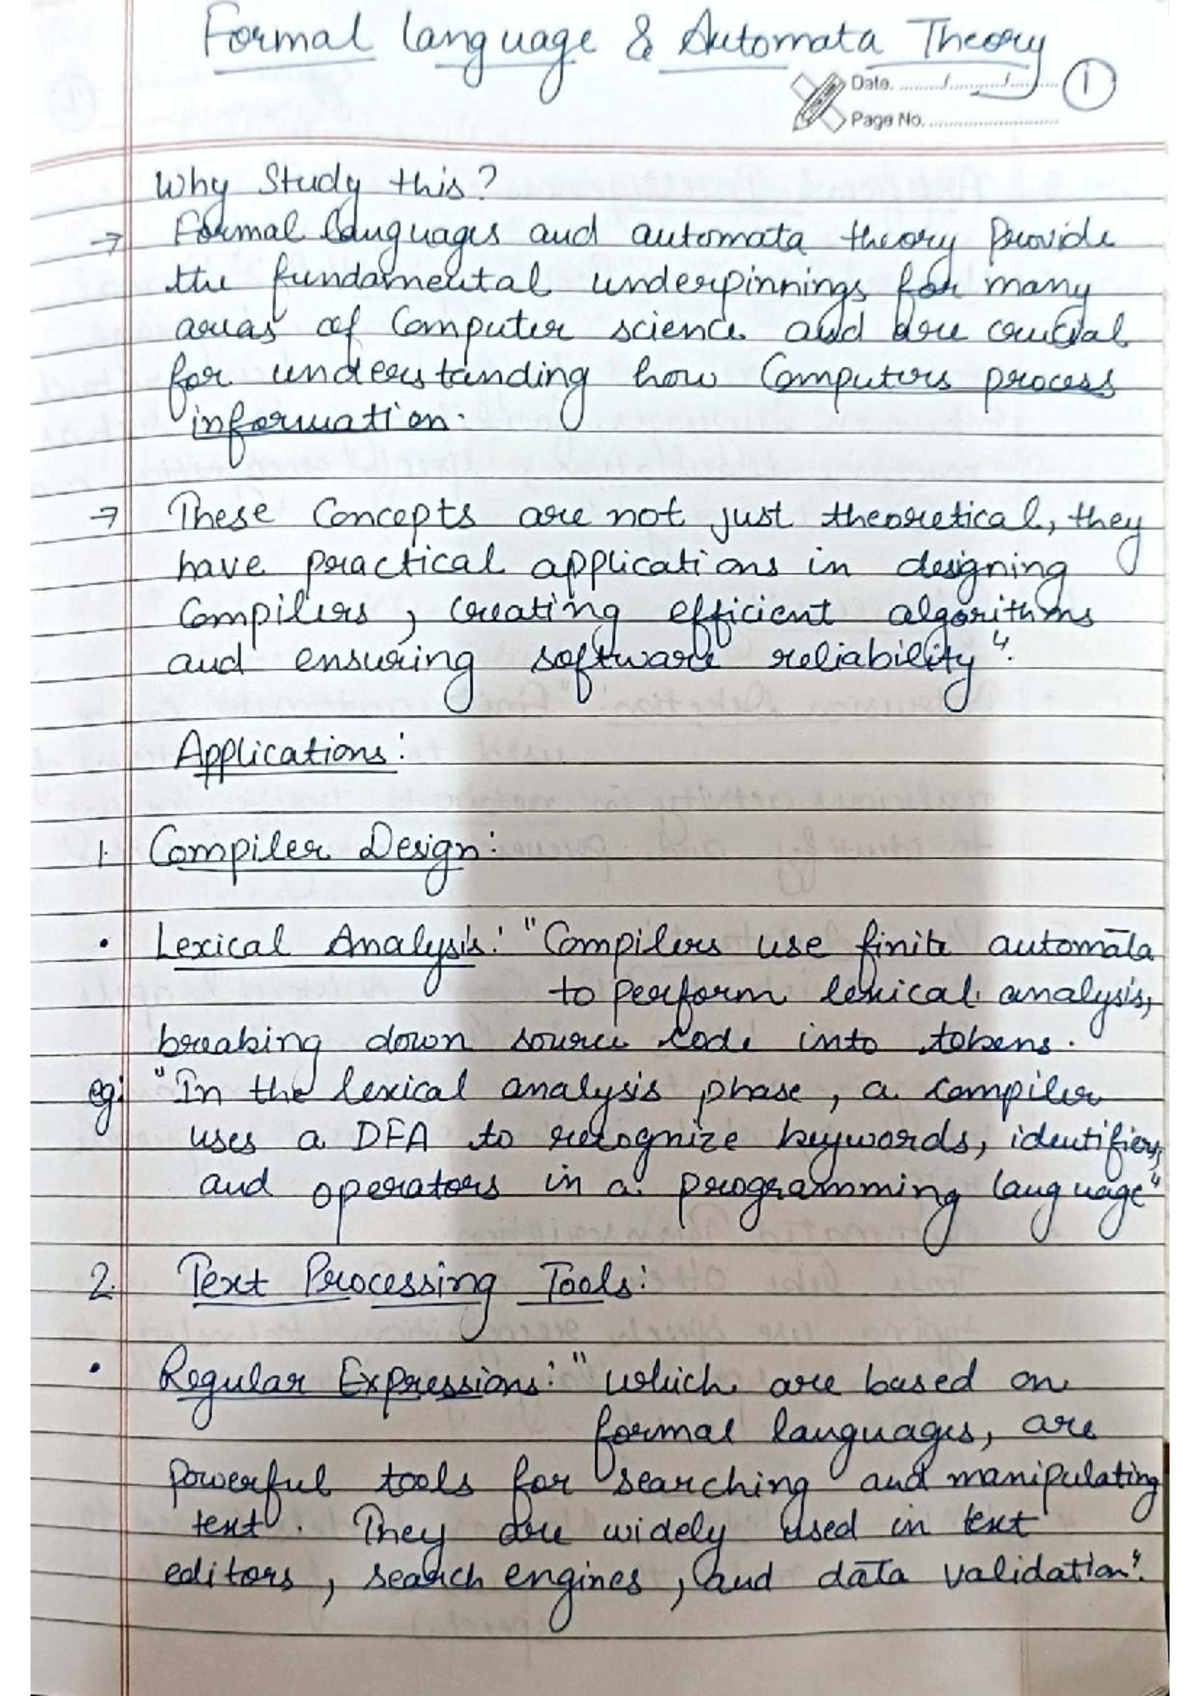 Formal language & Automata Theory
Date. ......./......./.......
1
Page No. ..............................
Why Study this?
→ Formal languages and automata theory Provide
the fundamental underpinnings for many
areas of Computer science and are crucial
for understanding how Computers process
information.
→ These Concepts are not just theoretical, they
have practical applications in designing
Compilers, creating efficient algorithms
and ensuring software reliability".
Applications:
1. Compiler Design:
• Lexical Analysis: "Compilers use finite automata
to perform lexical analysis,
breaking down source code into tokens.
eg: "In the lexical analysis phase, a compiler
uses a DFA to recognize keywords, identifiers,
and operators in a programming language"
2. Text Processing Tools:
• Regular Expressions: "which are based on
formal languages, are
powerful tools for searching and manipulating
text. They are widely used in text
editors, search engines, and data validation".